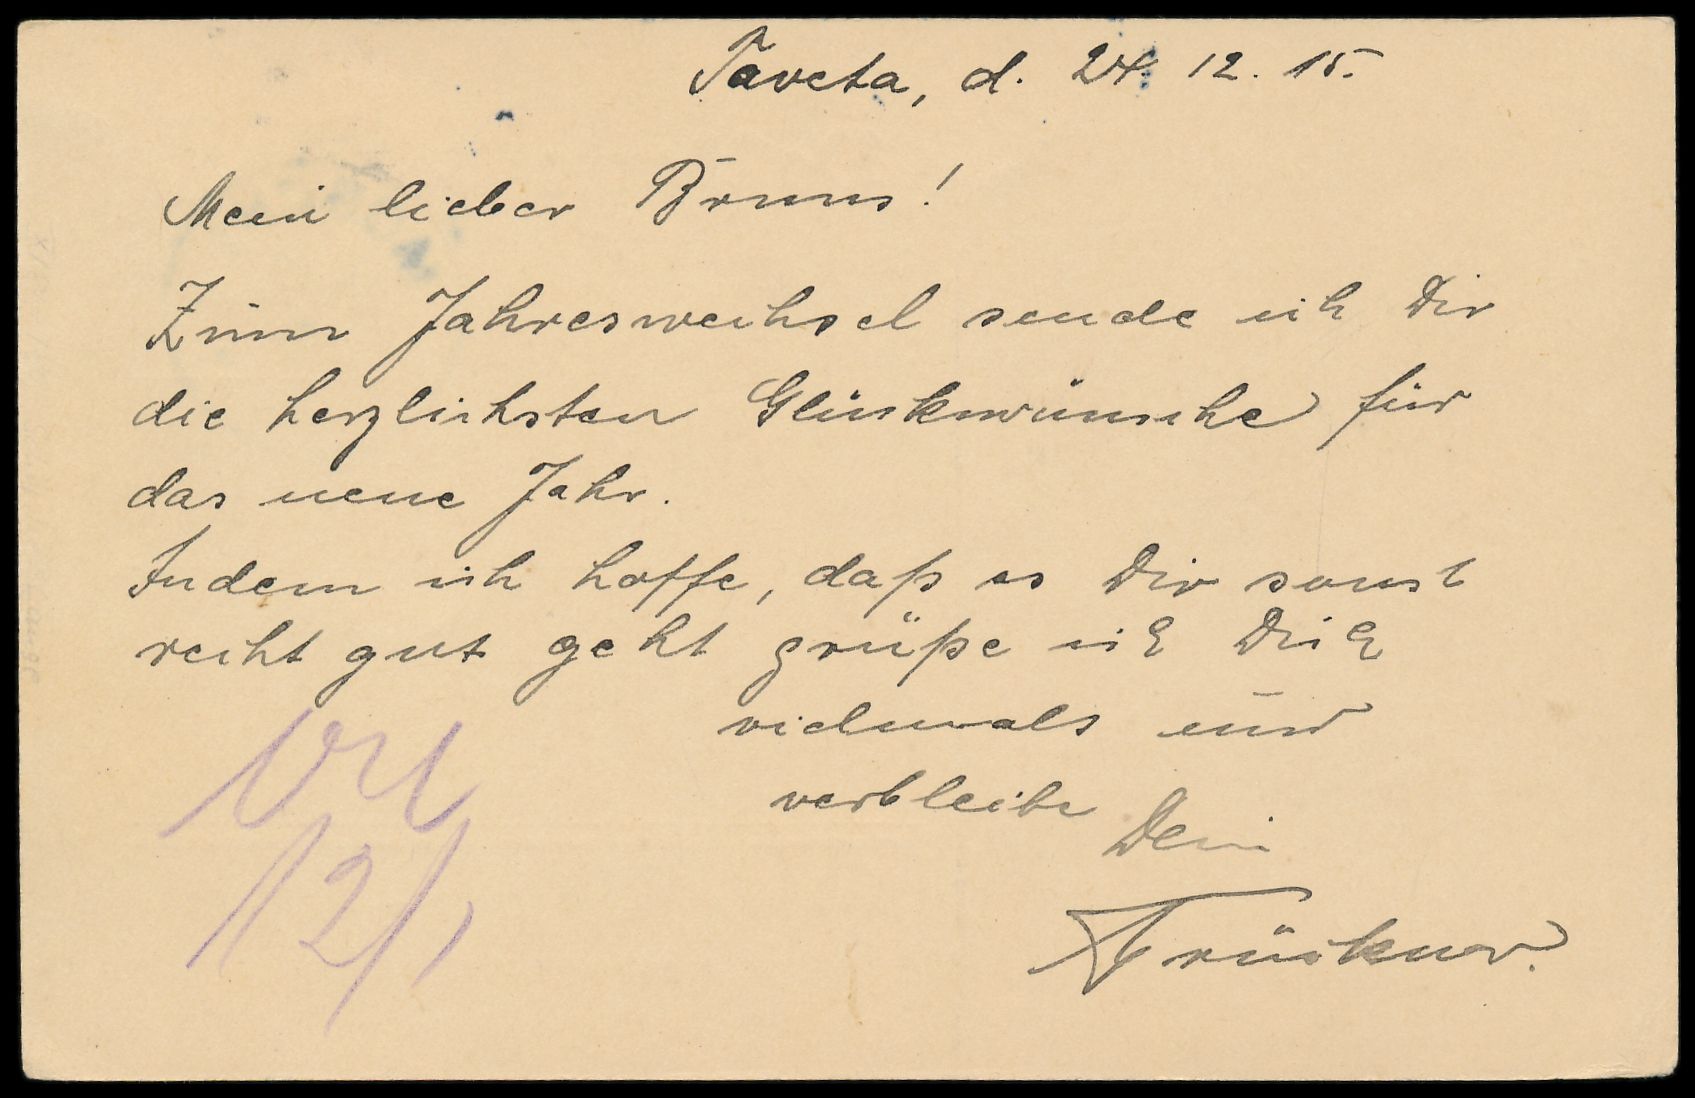 Taveta, d. 24. 12. 15.
Mein lieber Bruns!
Zum Jahreswechsel sende ich Dir
die herzlichsten Glückwünsche für
das neue Jahr.
Indem ich hoffe, daß es Dir sonst
recht gut geht grüße ich Dich
vielmals und
verbleibe Dein
12/1